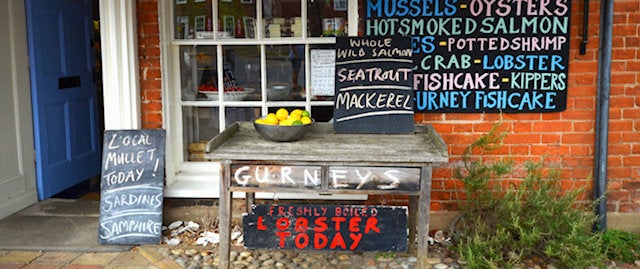 MUSSELS-OYSTERS
HOTSMOKED SALMON
ES-POTTEDSHRIMP
CRAB-LOBSTER
FISHCAKE-KIPPERS
URNEY FISHCAKE
WHOLE
WILD SALMON
SEATROUT
MACKEREL
LOCAL
MULLET
TODAY!
SARDINES
SAMPHIRE
GURNEYS
FRESHLY BOILED
LOBSTER
TODAY